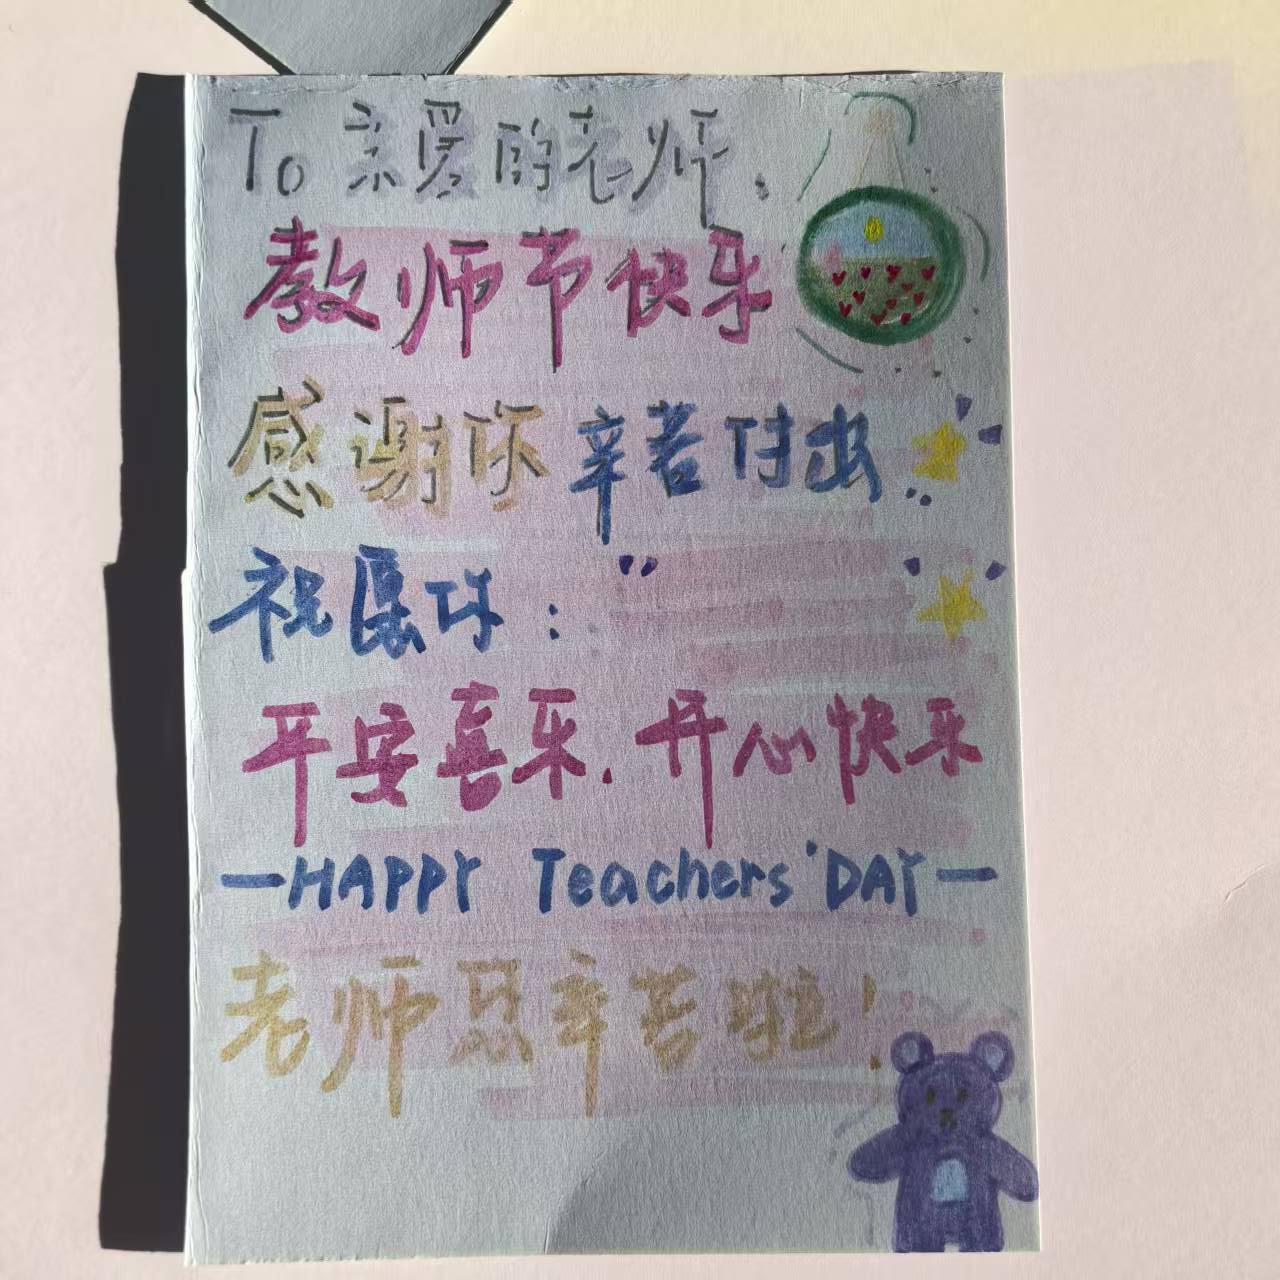 To 亲爱的老师:
教师节快乐
感谢你辛苦付出
祝愿你:
平安喜乐.开心快乐
—HAPPY Teachers' DAY—
老师 辛苦啦!